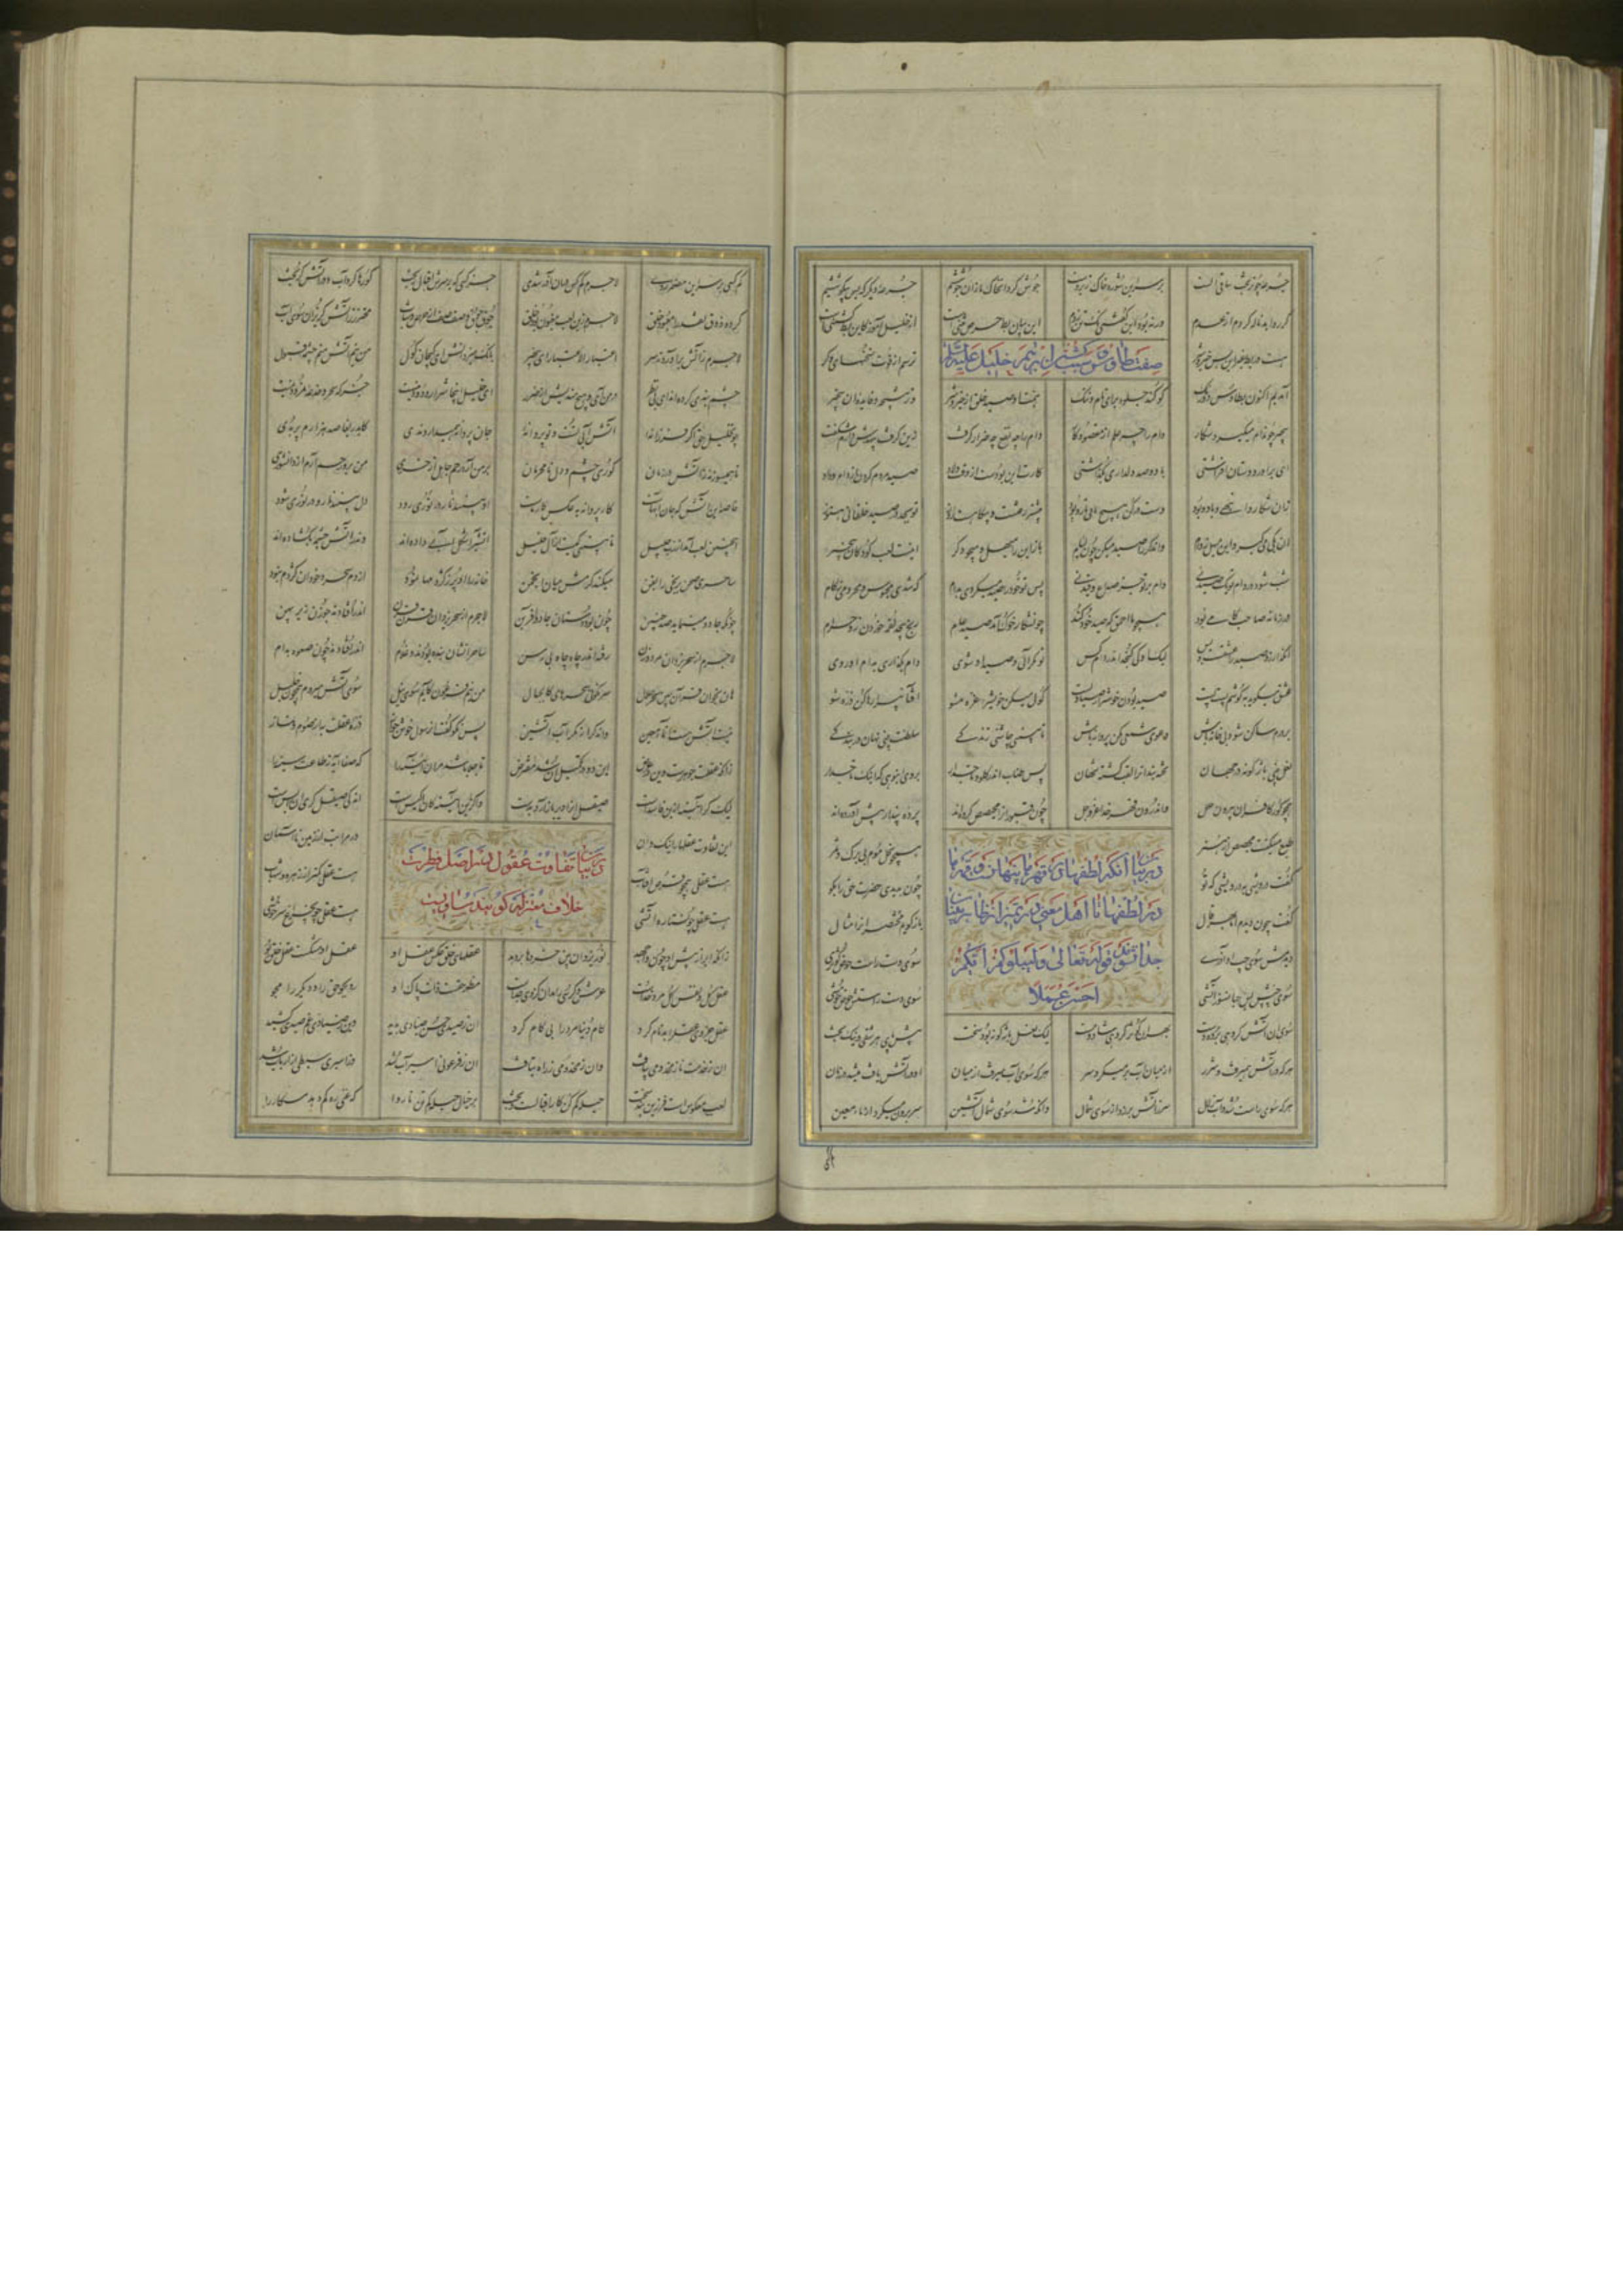 جرعه چون ریخت ساقی الست بر سر این شوره خاک زیردست جوش کرد آن خاک ما زان جوششیم جرعه دیگر که بس بی کوششیم
گر روا بد ناله کردم از عدم ور نبود این گفتنی نک تن زدم این بیان بط حرص منثنیست از خلیل آموز کان بط کشتنیست
هست در بط غیر این بس خیر و شر ترسم از فوت سخنهای دگر
صفت طاوس و سبب کشتن ابرهیم خلیل علیه السلام
آمدیم اکنون بطاوس دورنگ کو کند جلوه برای نام و ننگ همت او صید خلق از خیر و شر وز نتیجه و فایده آن بیخبر
بیخبر چون دام میگیرد شکار دام را چه علم از مقصود کار دام را چه نفع چه ضر از گرفت زین گرفت بیهدش دارم شگفت
ای برادر دوستان افراشتی با دو صد دلداری و بگذاشتی کارت این بودست از وقت ولاد صید مردم کردن از دام وداد
زان شکار و انبهی و باد و بود دست در کن هیچ یابی تار و پود بیشتر رفتست و بیگاهست روز تو بجد در صید خلقانی هنوز
آن یکی می گیر و این می هل ز دام وان دگر را صید میکن چون لئام باز این را می هل و میجو دگر اینت لعب کودکان بیخبر
شب شود در دام تو یک صید نی دام بر تو جز صداع و قید نی پس تو خود را صید میکردی بدام که شدی محبوس و محرومی ز کام
در زمانه صاحب دامی بود همچو ما احمق که صید خود کند چون شکار خوک آمد صید عام رنج بیحد لقمه خوردن زو حرام
آنکه ارزد صید را عشقست و بس لیک او کی گنجد اندر دام کس تو مگر آیی و صید او شوی دام بگذاری بدام او روی
عشق میگوید بگوشم پست پست صید بودن خوشتر از صیادیست گول من کن خویش را و غره شو آفتابی را رها کن ذره شو
بر درم ساکن شو و بی خانه باش دعوی شمعی مکن پروانه باش تا ببینی چاشنی زندگی سلطنت بینی نهان در بندگی
نعل بینی بازگونه در جهان تخته بندان را لقب گشته شهان پس طناب اندر گلو و تاج دار بر وی انبوهی که اینک تاجدار
همچو گور کافران بیرون حلل واندرون قهر خدا عز و جل چون قبور آن را مجصص کرده اند پرده پندار پیش آورده اند
طبع مسکینت مجصص از هنر همچو نخل موم بی برگ و ثمر
در بیان آنکه لطفها در قهرها پنهانست و قهرها
در لطفها تا اهل معنی و تمییز از ظاهربینان
جدا شوند قوله تعالی ولیبلوکم ایکم
احسن عملا
گفت درویشی بدرویشی که تو چون بدیدی حضرت حق را بگو
گفت بیچون دیدم اما بهر قال باز گویم مختصر آن را مثال
دیدمش سوی چپ او آذری سوی دست راست حوض کوثری
سوی چپش بس جهانسوز آتشی سوی دست راستش جوی خوشی
سوی آن آتش گروهی برده دست بهر آن کوثر گروهی شاد و مست لیک لعب باژگونه بود سخت پیش پای هر شقی و نیکبخت
هر که در آتش همیرفت و شرر از میان آب بر میکرد سر هر که سوی آب میرفت از میان او در آتش یافت میشد در زمان
هر که سوی راست شد و آب زلال سر ز آتش بر زد از سوی شمال وانکه شد سوی شمال آتشین سر برون میکرد از یمین
کم کسی بر سر این مضمر زدی لاجرم کم کس در آن آذر شدی جز کسی که بر سرش اقبال ریخت کو رها کرد آب و در آتش گریخت
کرده ذوق نقد را معبود خلق لاجرم زین لعب مغبون بود خلق جوق جوق و صف صف از حرص و شتاب محترز ز آتش گریزان سوی آب
لاجرم ز آتش برآوردند سر اعتبار الاعتبار ای بیخبر بانگ میزد آتش ای گیجان گول من نیم آتش منم چشمه قبول
چشم بندی کرده اند ای بی نظر در من آی و هیچ مندیش از شرر ای خلیل اینجا شرار و دود نیست جز که سحر و خدعه نمرود نیست
چون خلیل حق اگر فرزانه آتش آب تست و تو پروانه جان پروانه همیدارد ندی کای دریغا صد هزارم پر بدی
تا همیسوزند ز آتش بی امان کوری چشم و دل نامحرمان بر من آرد رحم جاهل از خری من برو رحم آرم از دانشوری
خاصه این آتش که جان آبهاست کار پروانه بعکس کار ماست او ببیند نار و در نوری رود دل ببیند نار و در نوری شود
اینچنین لعب آمد از رب جلیل تا ببینی کیست از آل خلیل آتشی را شکل آبی داده اند واندر آتش چشمه بگشاده اند
ساحری صحن برنجی را بفن میکند کرمش میان انجمن خانه را او پر ز کژدمها نمود از دم سحر و خود آن کژدم نبود
چونکه جادو مینماید صد چنین چون بود دستان جادو آفرین لاجرم از سحر یزدان قرن قرن اندر افتادند چون زن زیر پهن
لاجرم از سحر یزدان مرد و زن رفته اندر چاه جاه بی رسن ساحرانشان بنده بودند و غلام اندر افتادند چون صعوه بدام
هین بخوان قرآن ببین سحر حلال سرنگونی مکرهای کالجبال من نیم فرعون کایم سوی نیل سوی آتش میروم همچون خلیل
نیست آتش هست آن ماء معین وان دگر از مکر آب آتشین پس نکو گفت آن رسول خوش جواز ذره عقلت به از صوم و نماز
زانکه عقلت جوهرست و این دو عرض این دو در تکمیل آن شد مفترض تا جلا باشد مر آن آیینه را که صفا آید ز طاعت سینه را
لیک گر آیینه از بن فاسدست صیقل او را دیر باز آرد بدست وان گزین آیینه کان اکیس است اندکی صیقل گری آن را بس است
این تفاوت عقلها را نیک دان در مراتب از زمین تا آسمان
در بیان تفاوت عقول در اصل فطرت
خلاف معتزله که گویند متساویست
هست عقلی همچو قرص آفتاب هست عقلی کمتر از زهره و شهاب
هست عقلی چون ستاره آتشی هست عقلی چون چراغ سرخوشی
زانکه ابر از پیش او چون واجهد نور یزدان بین خردها بر دهد عقلهای خلق عکس عقل او عقل او مشکست و عقل خلق بو
عقل کل و نفس کل مرد خداست عرش و کرسی را مدان کز وی جداست مظهر حقست ذات پاک او زو بجو حق را و دیگر را مجو
عقل جزوی عقل را بدنام کرد کام دنیا مرد را بی کام کرد آن ز صیدی حسن صیادی بدید وین ز صیادی غم صیدی کشید
آن ز خدمت ناز مخدومی بیافت وان ز مخدومی ز راه عز بتافت آن ز فرعونی اسیر آب شد وز اسیری سبطی از ارباب شد
لعب معکوس است و فرزین بند سخت حیله کم کن کار اقبالست و بخت بر خیال و حیله کم تن تار را که غنی ره کم دهد مکار را